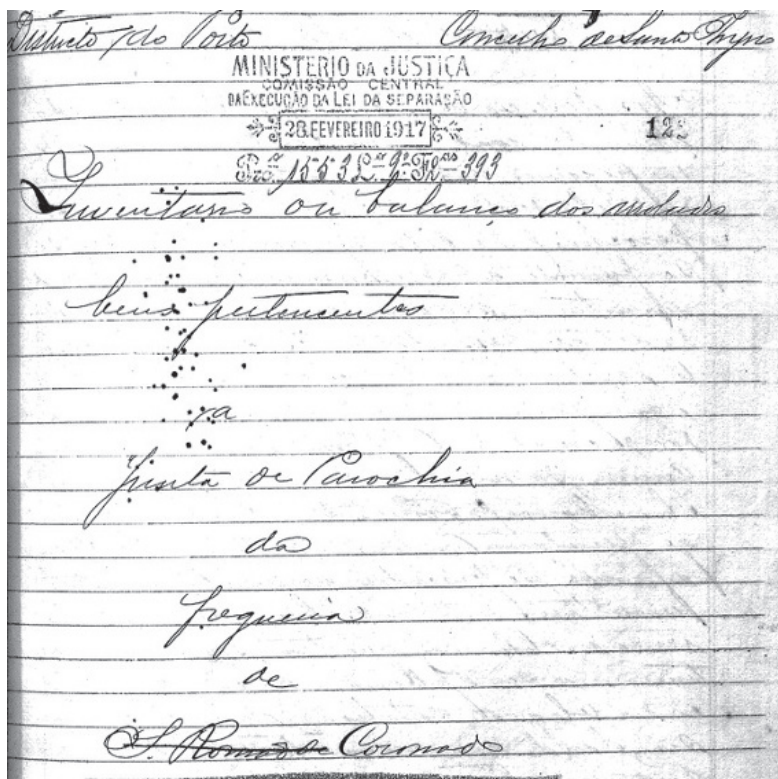 Districto do Porto Concelho de Santo Thyrso
MINISTERIO DA JUSTIÇA
COMISSÃO CENTRAL
DA EXECUÇÃO DA LEI DA SEPARAÇÃO
28 FEVEREIRO 1917
122
Proc.º 1553 L.º 2º Fl.as 393
Inventario ou balanço dos
bens pertencentes
a
Junta de Parochia
da
freguesia
de
S. Romão de Coronado